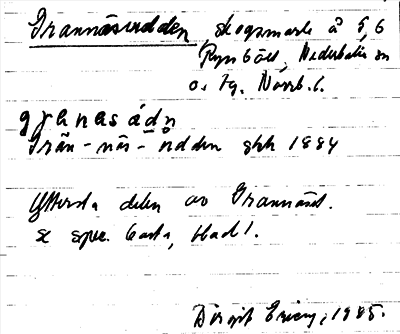 Grannäsudden, skogsmark å 5,6
Rynbäck, Nederkalix sn
o. tg. Norrb. l.
granasádn
Grän-näs-udden ghk 1884
Yttersta delen av Grannäset.
se spec. karta, blad 1.
Birgit Ericy, 1985.